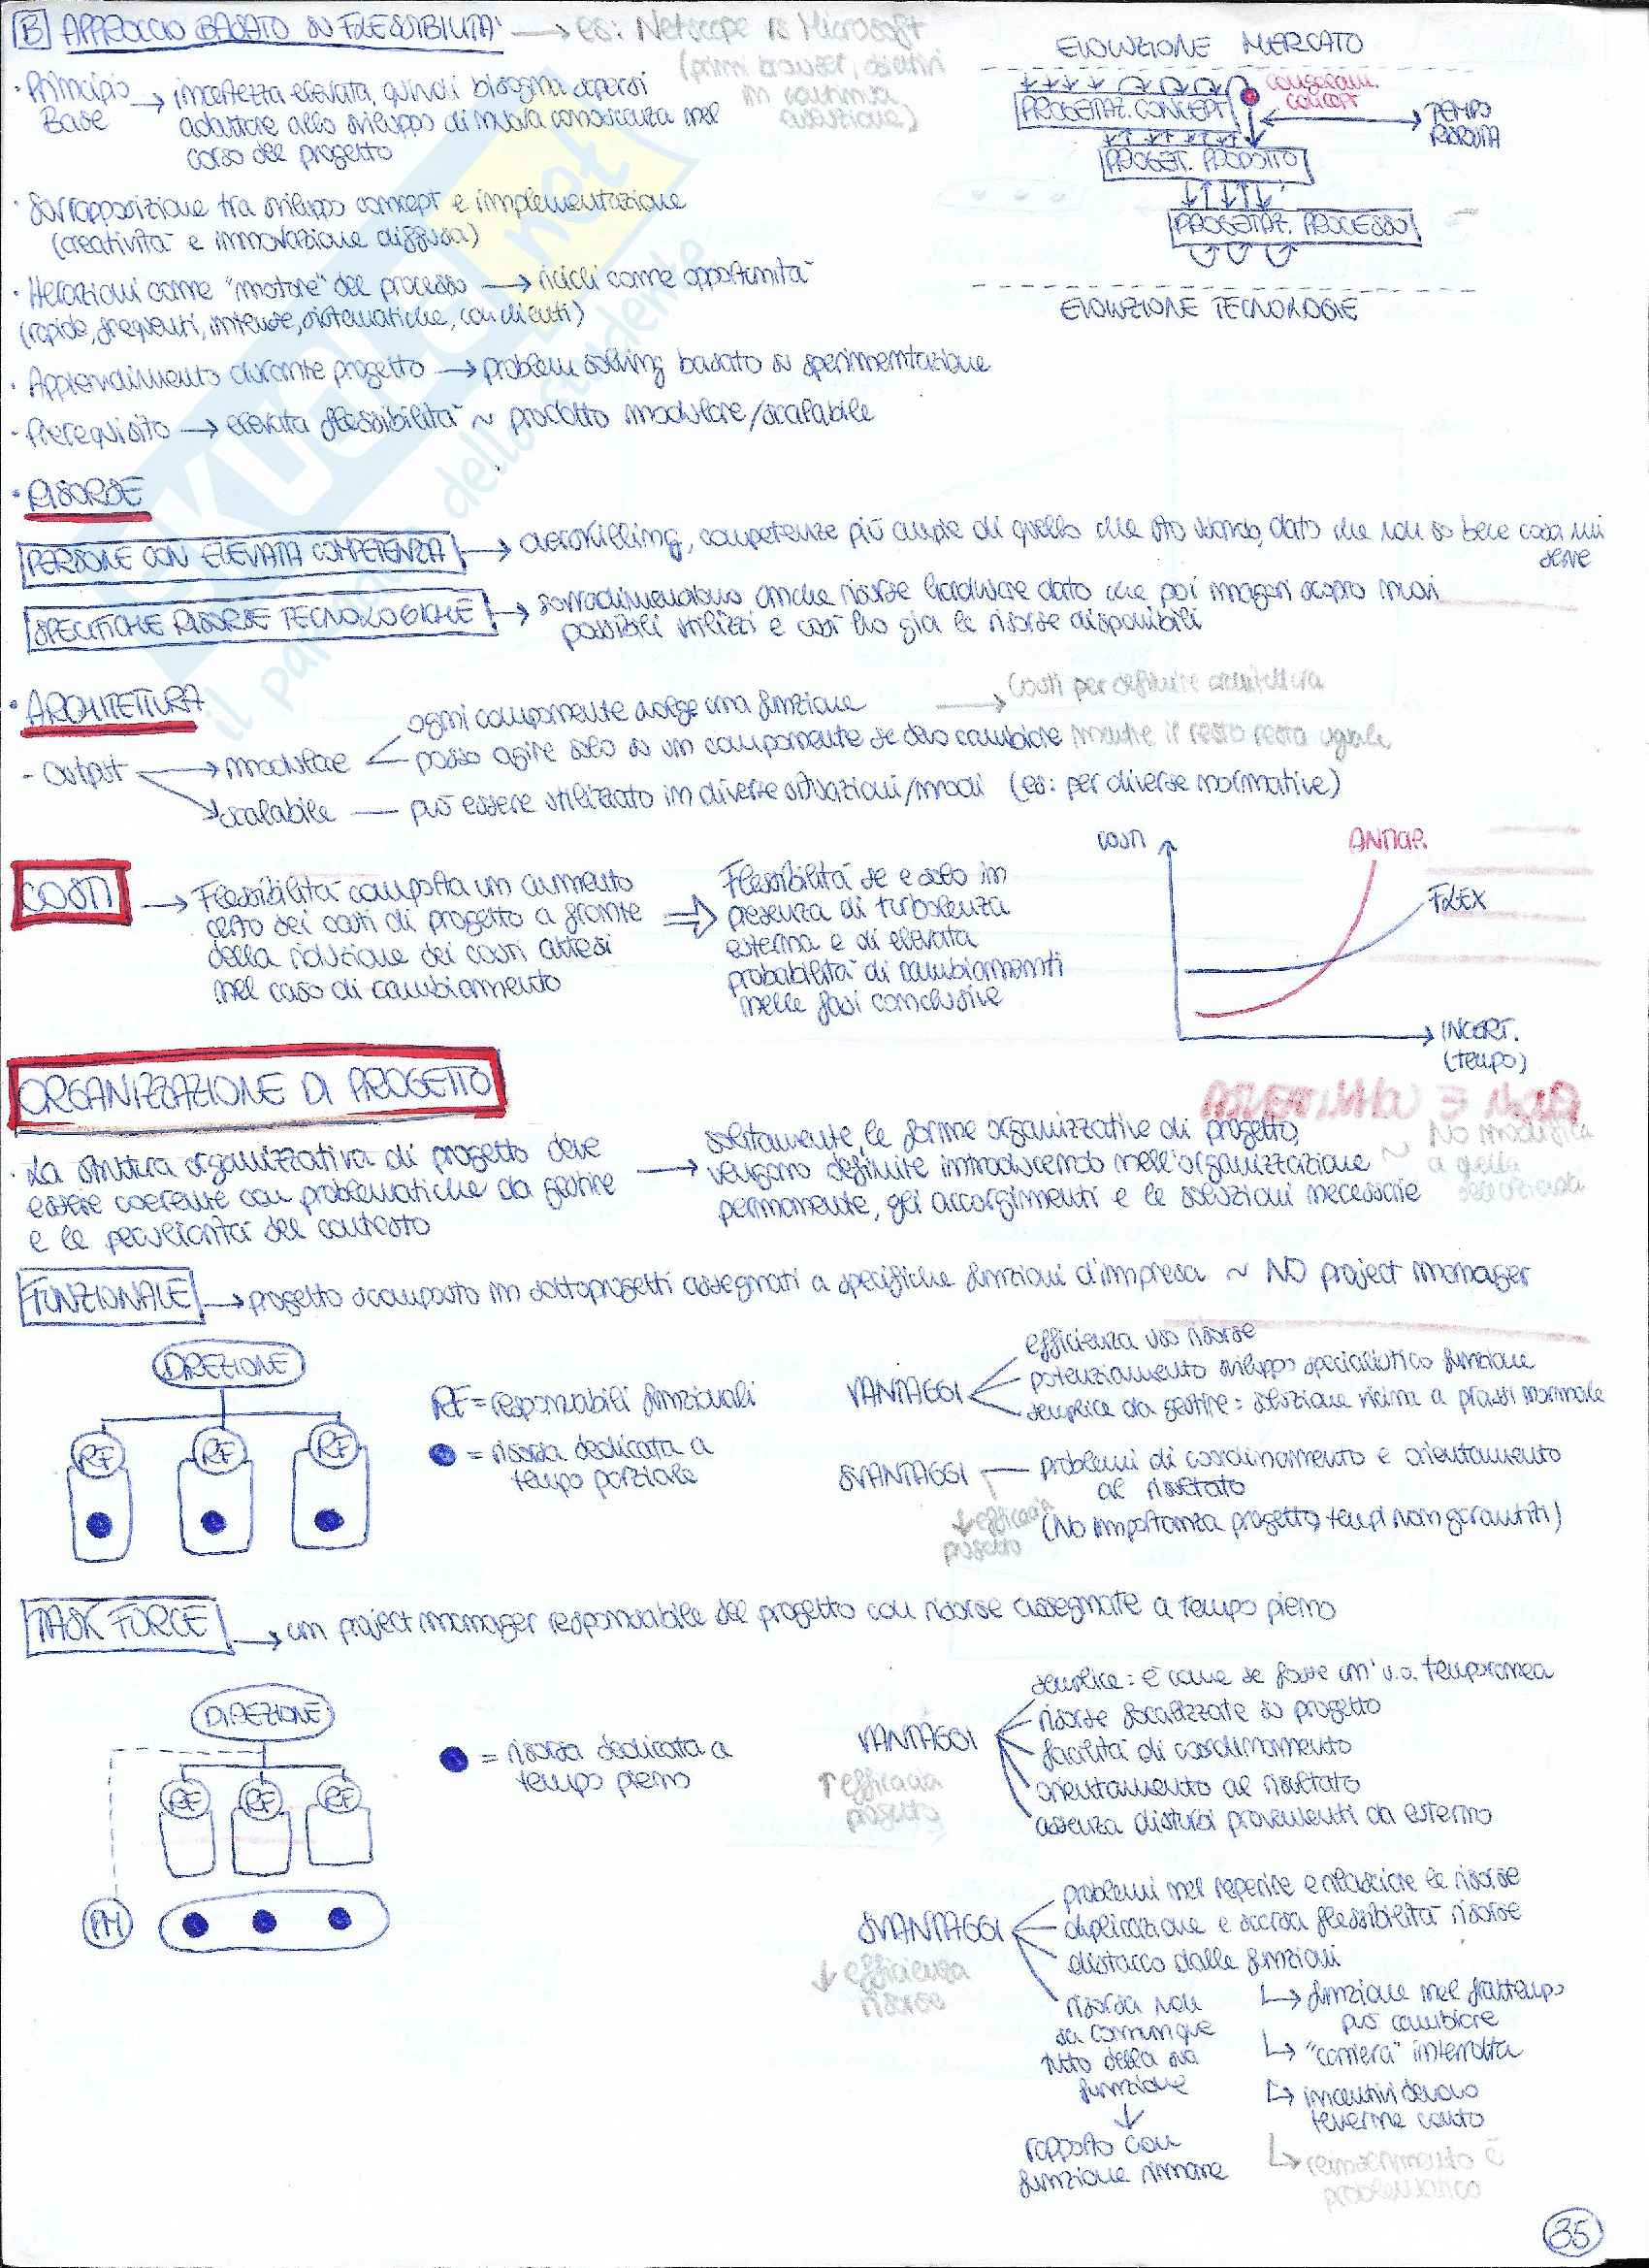 B APPROCCIO BASATO SU FLESSIBILITÀ → es: Netscape vs Microsoft
(primi browser, obiettivi
in continua
evoluzione)
· Principio Base → incertezza elevata, quindi bisogna sapersi
adattare allo sviluppo di nuova conoscenza nel
corso del progetto
· Sovrapposizione tra sviluppo concept e implementazione
(creatività e innovazione diffusa)
· Iterazioni come "motore" del processo → ricicli come opportunità
(rapide, frequenti, intense, sistematiche, con clienti)
· Apprendimento durante progetto → problem solving basato su sperimentazione
· Prerequisito → elevata flessibilità ~ prodotto modulare/scalabile
EVOLUZIONE MERCATO
PROGETTAZ. CONCEPT
congelam.
concept
TEMPO
RISPOSTA
PROGET. PRODOTTO
PROGETTAZ. PROCESSO
EVOLUZIONE TECNOLOGIE
· RISORSE
PERSONE CON ELEVATA COMPETENZA → overskilling, competenze più ampie di quello che sto usando, dato che non so bene cosa mi
serve
SPECIFICHE RISORSE TECNOLOGICHE → sovradimensiono anche risorse hardware dato che poi magari scopro nuovi
possibili utilizzi e così ho già le risorse disponibili
· ARCHITETTURA
→ Costi per definire architettura
- Output → modulare
ogni componente svolge una funzione
posso agire solo su un componente se devo cambiare mentre il resto resta uguale
scalabile — può essere utilizzato in diverse situazioni/modi (es: per diverse normative)
COSTI → Flessibilità comporta un aumento
certo dei costi di progetto a fronte
della riduzione dei costi attesi
nel caso di cambiamento
⇒ Flessibilità se e solo in
presenza di turbolenza
esterna e di elevata
probabilità di cambiamenti
nelle fasi conclusive
COSTI
ANTICIP.
FLEX
INCERT.
(tempo)
ORGANIZZAZIONE DI PROGETTO
· La struttura organizzativa di progetto deve
essere coerente con problematiche da gestire
e le peculiarità del contesto
→ solitamente, le forme organizzative di progetto,
vengono definite introducendo nell'organizzazione
permanente, gli accorgimenti e le soluzioni necessarie
~ No modifica
a quella
FUNZIONALE → progetto scomposto in sottoprogetti assegnati a specifiche funzioni d'impresa ~ NO project manager
DIREZIONE
RF RF RF
RF = responsabili funzionali
= risorsa dedicata a
tempo parziale
VANTAGGI
efficienza uso risorse
potenziamento sviluppo specialistico funzione
semplice da gestire: soluzione vicina a prassi normale
SVANTAGGI — problemi di coordinamento e orientamento
al risultato
(No importanza progetto, tempi non garantiti)
↓ efficacia
progetto
TASK FORCE → un project manager responsabile del progetto con risorse assegnate a tempo pieno
DIREZIONE
RF RF RF
PM
= risorsa dedicata a
tempo pieno
VANTAGGI
↑ efficacia
progetto
semplice: è come se fosse un' u.o. temporanea
risorse focalizzate su progetto
facilità di coordinamento
orientamento al risultato
assenza disturbi provenienti da esterno
SVANTAGGI
↓ efficienza
risorse
problemi nel reperire e rilasciare le risorse
duplicazione e scarsa flessibilità risorse
distacco dalle funzioni
↳ funzione nel frattempo
può cambiare
↳ "carriera" interrotta
↳ incentivi devono
tenerne conto
↳ reinserimento è
problematico
risorsa non
sa comunque
tutto della sua
funzione
↓
rapporto con
funzione rimane
35
AKUEBI.net
il paradiso dello studente